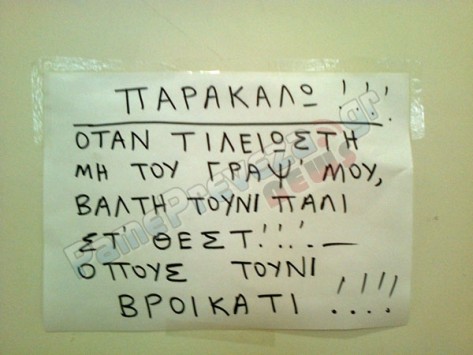 ΠΑΡΑΚΑΛΩ!!!
ΟΤΑΝ ΤΙΛΕΙΩΣΤΗ
ΜΗ ΤΟΥ ΓΡΑΨ' ΜΟΥ,
ΒΑΛΤΗ ΤΟΥΝΙ ΠΑΛΙ
ΣΤ' ΘΕΣΤ!!!.—
ΟΠΟΥΣ ΤΟΥΝΙ
ΒΡΟΙΚΑΤΙ!!!!
PamePreveza.gr
news